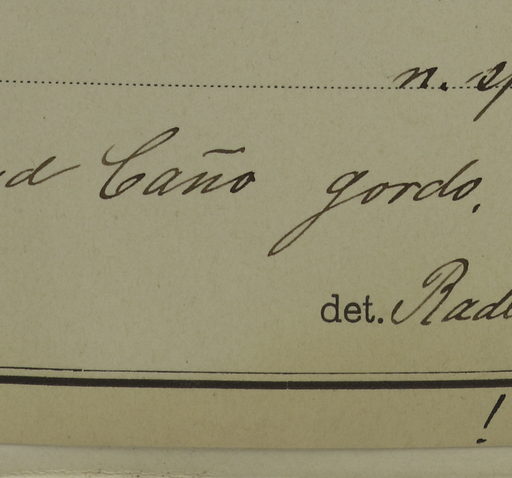 n. sp
d Caño gordo.
det. Rad
!